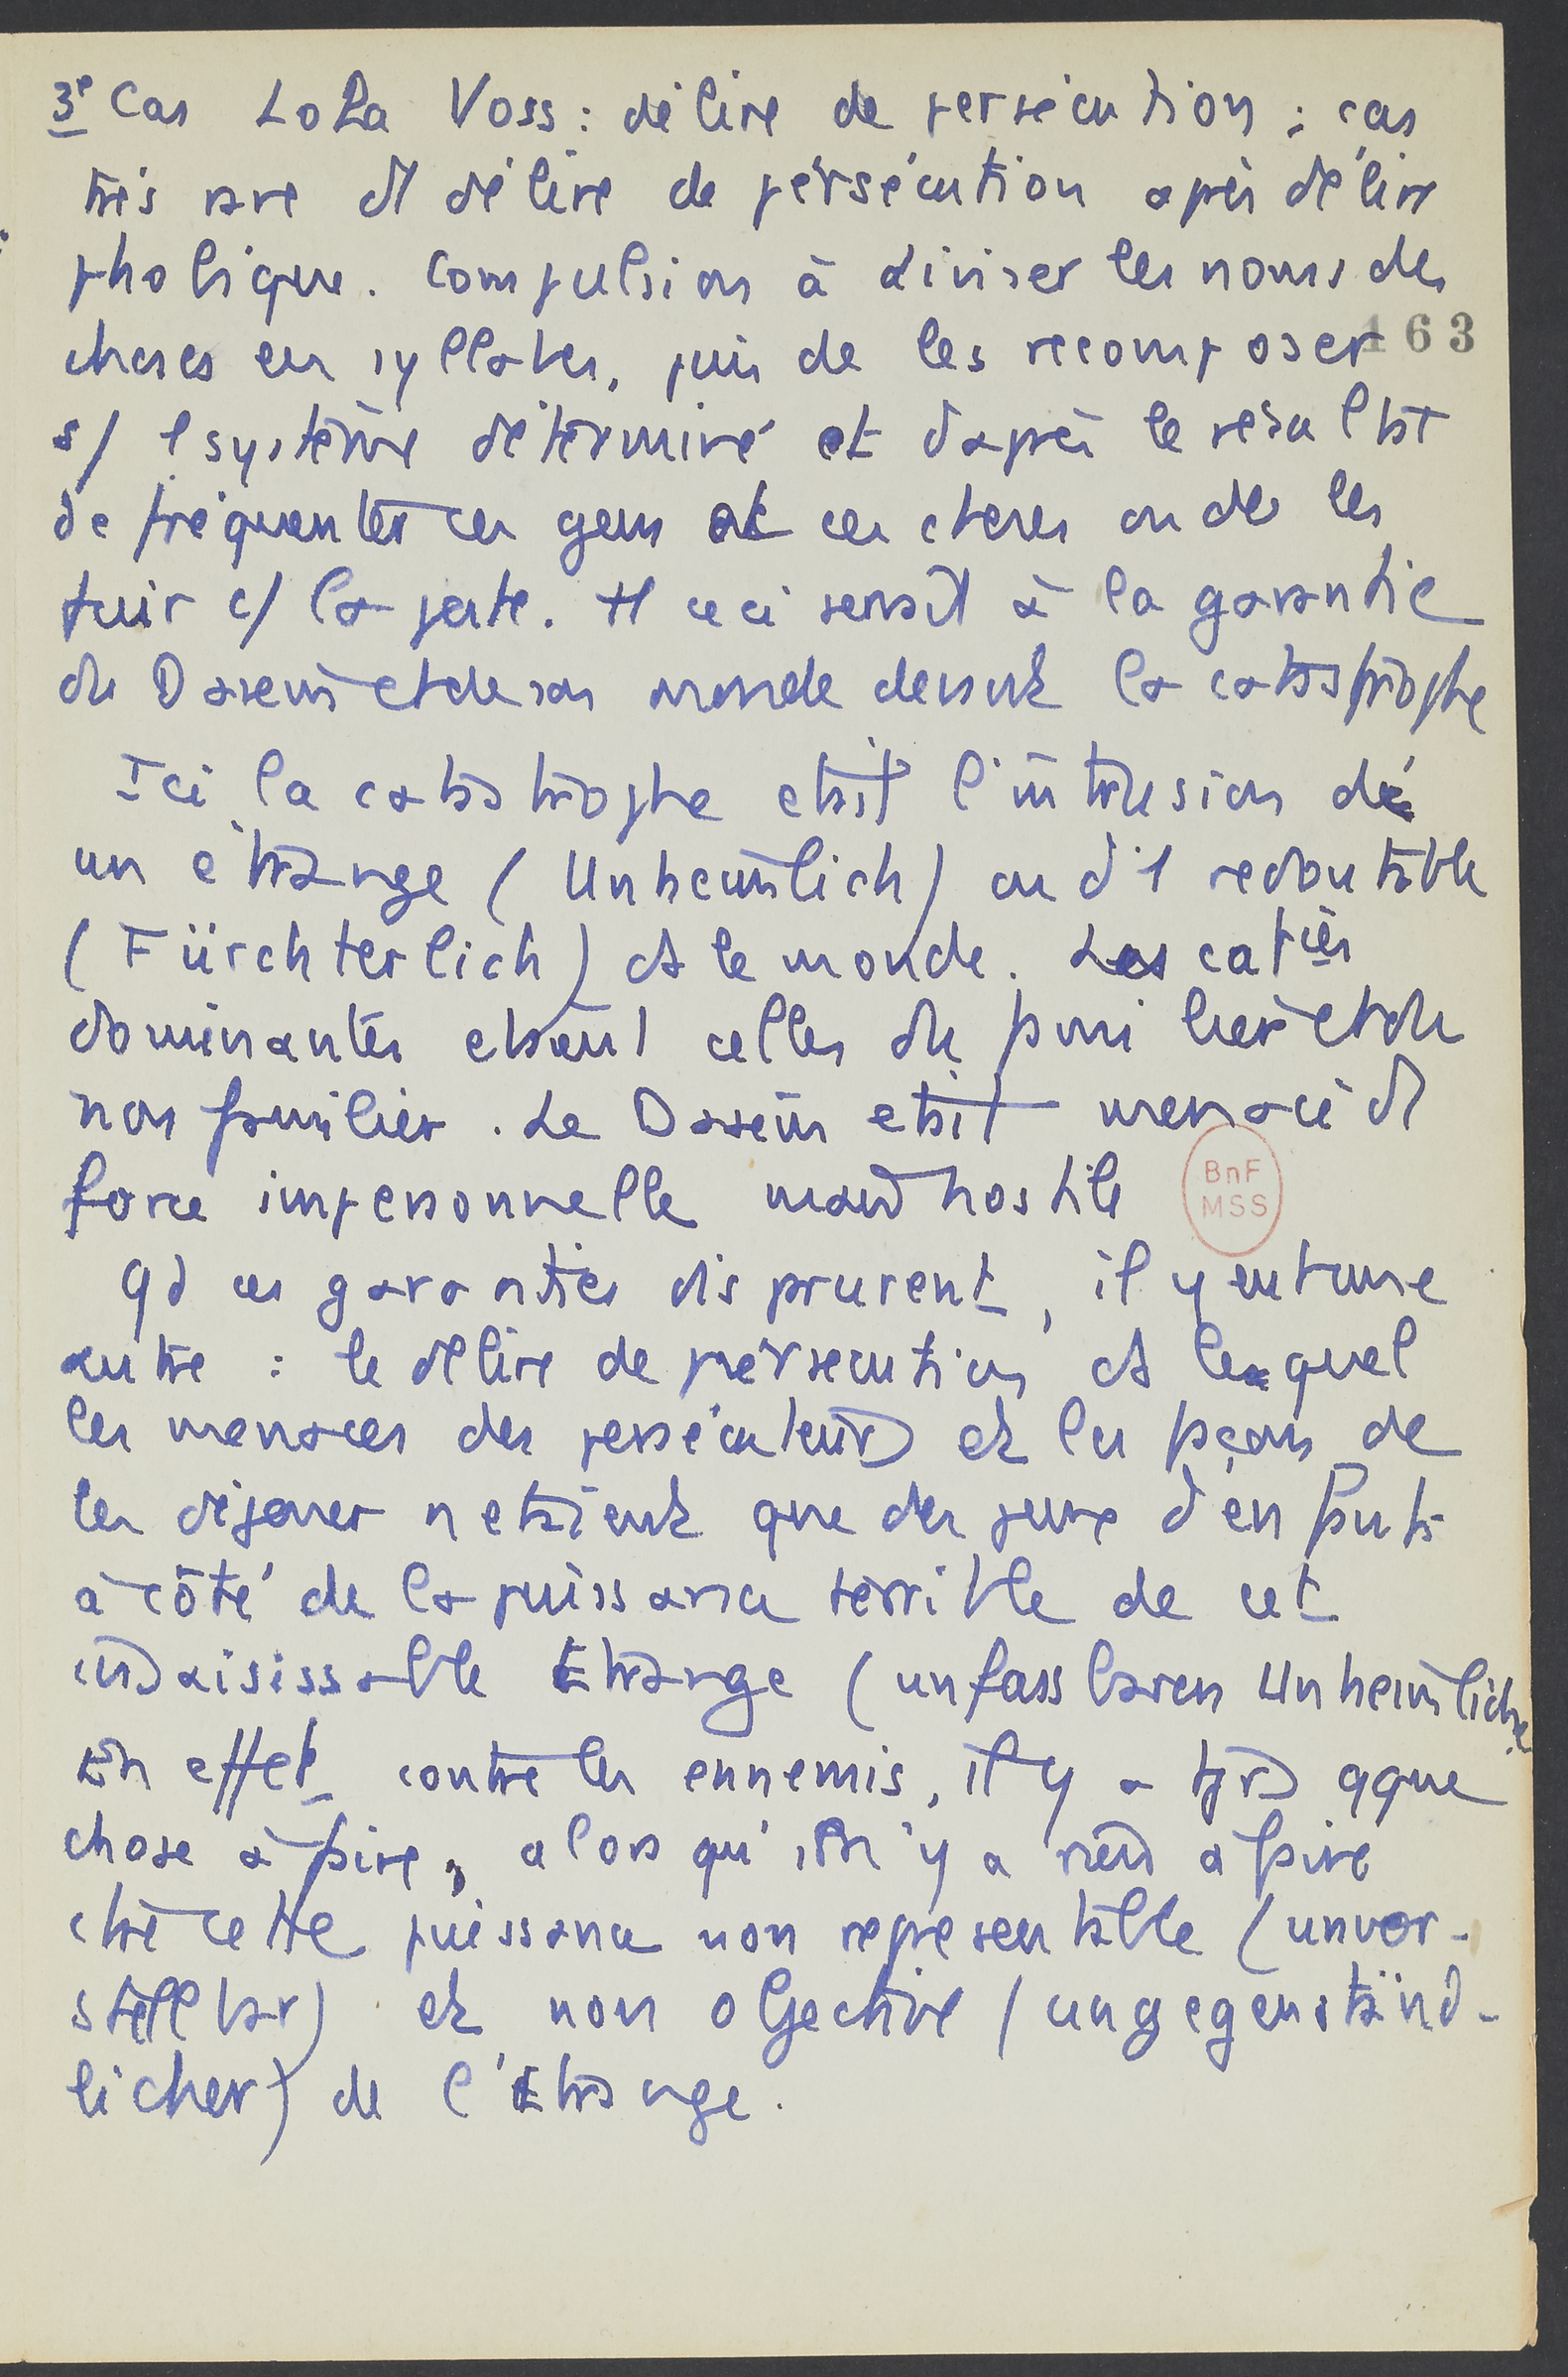 3e Cas Lola Voss : délire de persécution : cas
très rare d1 délire de persécution après délire
phobique. Compulsion à diviser les noms des
choses en syllabes, puis de les recomposer
163
s/ 1 système déterminé et d'après le résultat
de fréquenter ces gens et ces choses ou de les
fuir c/ la peste. Tt ceci servait à la garantie
du Dasein et de son monde devant la catastrophe
Ici la catastrophe etait l'intrusion de
un étrange (Unheimlich) ou d'1 redoutable
(Fürchterlich) ds le monde. Les caties
dominantes etaient celles du familier et du
non familier. Le Dasein etait menacé d1
force impersonnelle hostile
BnF
MSS
Qd ces garanties disparurent, il y eut une
autre : le délire de persécution ds lequel
les menaces des persécuteurs et les façons de
les déjouer n'etaient que des jeux d'enfants
à côté de la puissance terrible de cet
insaisissable Etrange (unfassbaren Unheimliche
En effet contre les ennemis, il y a tjrs qque
chose à faire, alors qu'il n'y a rien à faire
ctre cette puissance non representable (unvor-
stellbar) et non objective (ungegenständ-
licher) de l'Etrange.